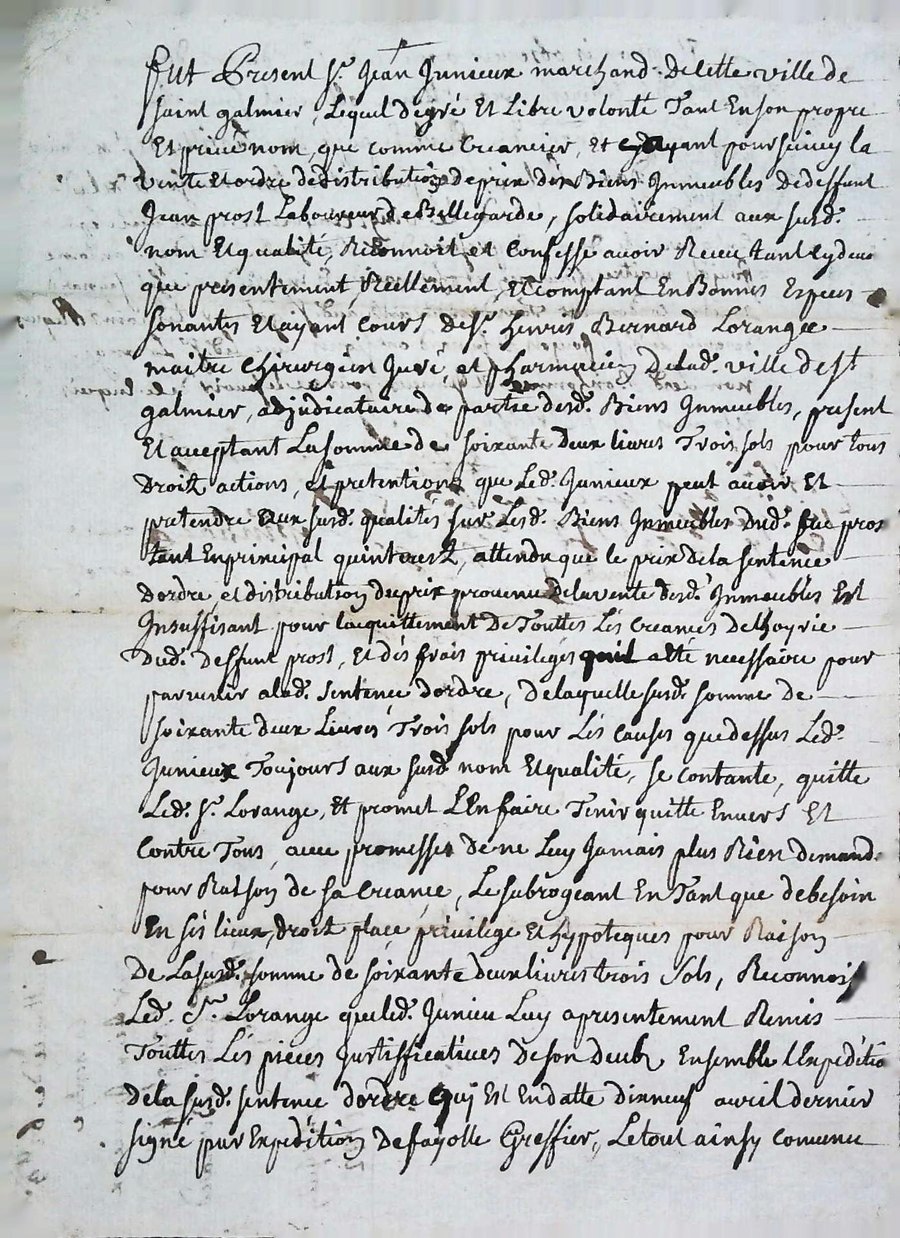 Fut Present Sr. Jean Junieux marchand de cette ville de
saint galmier, Lequel de gré Et Libre volonté Tant En son propre
Et privé nom, que comme Creancier, et ayant poursuivy la
vente et ordre de distribution de prix des Biens Immeubles de deffunt
Jean prost Laboureur de Bellegarde, solidairement aux susd.
nom Et qualité, Reconnoit et Confesse avoir Receu tant cydevt
que presentement, Réellement, Et comptant En Bonnes Especes
sonantes Et ayant Cours de Sr. henris Bernard Lorange
maitre Chirurgien Juré, et pharmacien de lad. ville de st
galmier, adjudicataire de partie desd. Biens Immeubles, present
Et acceptant La somme de soixante deux livres Trois sols pour tous
Droitz actions, et pretentions que Led. Junieux peut avoir Et
pretendre aux susd. qualités sur Lesd. Biens Immeubles dud. feu pros
tant En principal qu'interestz, attendu que le prix de la sentence
dordre et distribution du prix provenu de la vente desd. Immeubles Est
Insuffisant pour lacquittement de Touttes Les Creances de hoyrie
dud. deffunt prost, Et des frais privilegés quil a été necessaire pour
parvenir a lad. sentence dordre, de laquelle susd. somme de
soixante deux Livres Trois sols pour Les Causes que dessus Led.
Junieux Toujours aux susd. nom Et qualité, se contante, quitte
Led. Sr. Lorange, Et promet L'En faire Tenir quitte Envers Et
Contre Tous, avec promesses de ne Luy Jamais plus Rien demand.
pour Raison de sa Creance, Le subrogeant En Tant que de besoin
En ses lieux, droitz place, privilege Et hypoteques pour Raison
De La susd. somme de soixante deux livres trois sols, Reconnois
Led. Sr. Lorange que led. Junieu Luy a presentement Remis
Touttes Les pieces Justifficatives de son deub, Ensemble l'Expeditio
de la susd. sentence dordre quy Est En datte dixneuf avril dernier
signé par Expedition defayolle Greffier, Le tout ainsy convenu